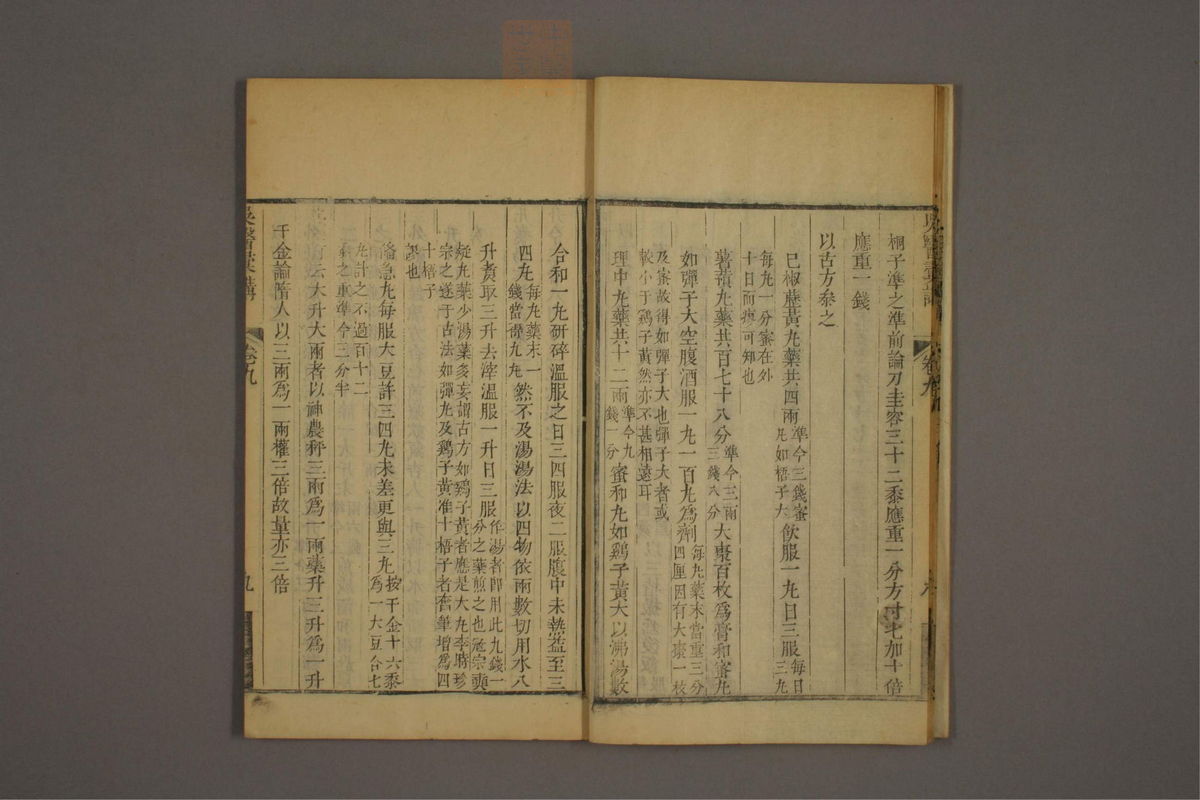 桐子準之準前論刀圭容三十二黍應重一分方寸匕加十倍
應重一錢
以古方叅之
已椒藶黃丸藥共四兩準今三錢蜜丸如梧子大飲服一丸日三服每日三丸
每丸一分蜜在外
十日而瘳可知也
薯蕷丸藥共百七十八分準今三兩三錢六分大棗百枚爲膏和蜜丸
如彈子大空腹酒服一丸一百丸爲劑每丸藥末當重三分四厘因有大棗一枚
及蜜故得如彈子大也彈子大者或
較小于鷄子黃然亦不甚相遠耳
理中丸藥共十二兩準今九錢一分蜜和丸如鷄子黃大以沸湯數
合和一丸研碎溫服之日三四服夜二服腹中未熱益至三
四丸每丸藥末一錢當謂九丸然不及湯湯法以四物依兩數切用水八
升煮取三升去滓溫服一升日三服作湯者即用此九錢一分之藥煎之也冦宗奭
疑丸藥少湯藥多妄謂古方如鷄子黃者應是大丸李時珍
宗之遂于古法如彈丸及鷄子黃准十梧子者舊筆增爲四
十梧子
誤也
備急丸每服大豆許三四丸未差更與三丸按千金十六黍爲一大豆合七
丸計之不過百十二
黍之重準今三分半
有云大升大兩者以神農秤三兩爲一兩藥升三升爲一升
千金論隋人以三兩爲一兩權三倍故量亦三倍
吳醫彚講
卷九
九